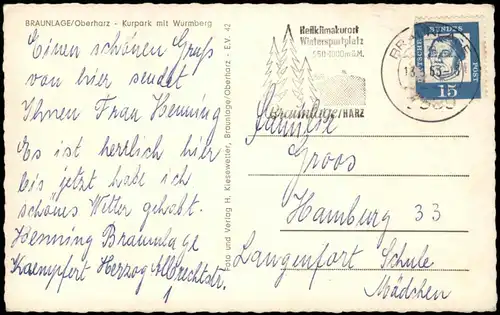 BRAUNLAGE/Oberharz - Kurpark mit Wurmberg
Einen schönen Gruß
von hier sendet
Ihnen Frau Henning
Es ist herrlich hier
bis jetzt hab ich
schönes Wetter gehabt.
Henning Braunlage
Kaempfert Herzog Albrechtstr.
Foto und Verlag H. Kiesewetter, Braunlage/Oberharz - E.V. 42
Heilklimakurort
Wintersportplatz
550-1000m ü.M.
Braunlage/HARZ
DEUTSCHE BUNDESPOST
15
Familie
Groos
Hamburg 33
Langenfort Schule
Mädchen